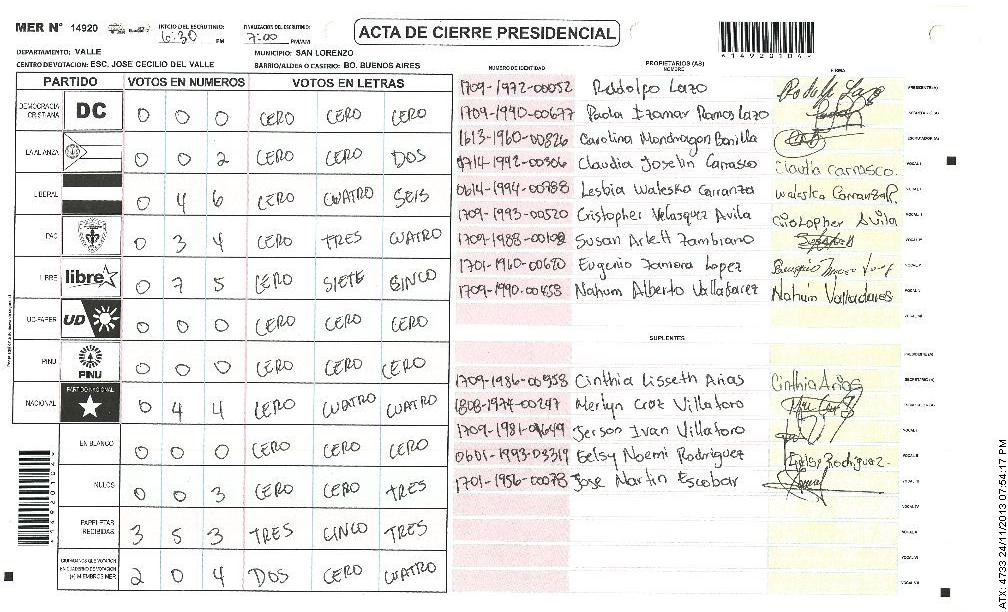 MER N° 14920
INICIO DEL ESCRUTINIO:
6:30 PM
FINALIZACION DEL ESCRUTINIO:
7:00 PM/AM
ACTA DE CIERRE PRESIDENCIAL
DEPARTAMENTO: VALLE
MUNICIPIO: SAN LORENZO
CENTRO DE VOTACION: ESC. JOSE CECILIO DEL VALLE
BARRIO/ALDEA O CASERIO: BO. BUENOS AIRES
PARTIDO VOTOS EN NUMEROS VOTOS EN LETRAS
DEMOCRACIA CRISTIANA DC 0 0 0 CERO CERO CERO
LA ALIANZA 0 0 2 CERO CERO DOS
LIBERAL 0 4 6 CERO CUATRO SEIS
PAC 0 3 4 CERO TRES CUATRO
LIBRE libre 0 7 5 CERO SIETE BINCO
UD-FAPER UD 0 0 0 CERO CERO CERO
PINU PINU 0 0 0 CERO CERO CERO
NACIONAL PARTIDO NACIONAL 0 4 4 CERO CUATRO CUATRO
EN BLANCO 0 0 0 CERO CERO CERO
NULOS 0 0 3 CERO CERO TRES
PAPELETAS RECIBIDAS 3 5 3 TRES CINCO TRES
CIUDADANOS QUE VOTARON EN CUADERNO DE VOTACION (+) MIEMBROS MER 2 0 4 DOS CERO CUATRO
NUMERO DE IDENTIDAD
PROPIETARIOS (AS)
NOMBRE
FIRMA
1709-1972-00052 Rodolpo Lazo PRESIDENTE (A)
1709-1990-00677 Paola Izamar Ramos Lazo SECRETARIO (A)
1613-1960-00826 Carolina Mondragon Bonilla ESCRUTADOR (A)
0714-1992-00306 Claudia Joselin Carrasco Claudia Carrasco. VOCAL I
0614-1994-00788 Lesbia Waleska Carranza Waleska Carranza R. VOCAL II
1709-1993-00520 Cristopher Velasquez Avila Cristopher Avila VOCAL III
1709-1988-00102 Susan Arlett Zambrano VOCAL IV
1701-1960-00620 Eugenio Zamora Lopez VOCAL V
1709-1990-00458 Nahum Alberto Valladarez Nahum Valladares VOCAL VI
VOCAL VII
SUPLENTES
PRESIDENTE (A)
1709-1986-00958 Cinthia Lisseth Arias Cinthia Arias SECRETARIO (A)
1808-1974-00247 Merlyn Cruz Villatoro
Jerson Ivan Villatoro VOCAL I
0601-1993-03319 Eelsy Noemi Rodriguez Eelsy Rodriguez. VOCAL II
1701-1956-00078 Jose Martin Escobar VOCAL III
VOCAL IV
VOCAL V
VOCAL VI
VOCAL VII
ATX: 4733 24/11/2013 07:54:17 PM